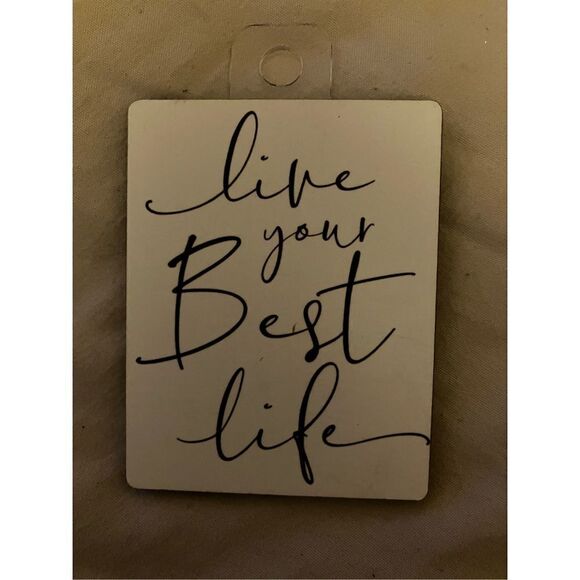 live
your
Best
life